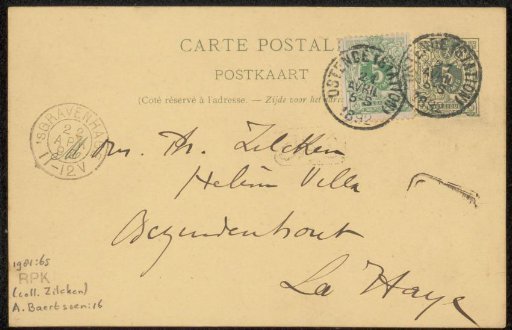 CARTE POSTALE
POSTKAART
(Coté réservé à l'adresse. — Zijde voor het
OSTENDE (STATION)
21
AVRIL
6-S
1892
OSTENDE (STATION)
6-S
1892
5
'SGRAVENHA
22
APR
92
11-12V
Ph. Zilcken
Helène Villa
Bezuidenhout
La Haye
1981:65
RPK
(coll. Zilcken)
A. Baertsoen:16